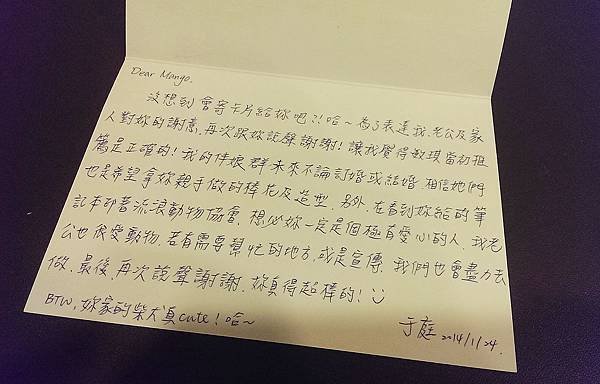 Dear Mango,
沒想到會寄卡片給妳吧?!哈~為了表達我、老公及家
人對妳的謝意,再次跟妳說聲謝謝!讓我覺得敏琪當初推
薦是正確的!我的伴娘群未來不論訂婚或結婚,相信她們
也是希望拿妳親手做的捧花及造型。另外,在看到妳給的筆
記本印著流浪動物協會,想必妳一定是個極有愛心的人,我老
公也很愛動物,若有需要幫忙的地方,或是宣傳,我們也會盡力去
做。最後,再次說聲謝謝,妳真得超棒的!
BTW,妳家的柴犬真cute!哈~
于庭 2014/11/24.